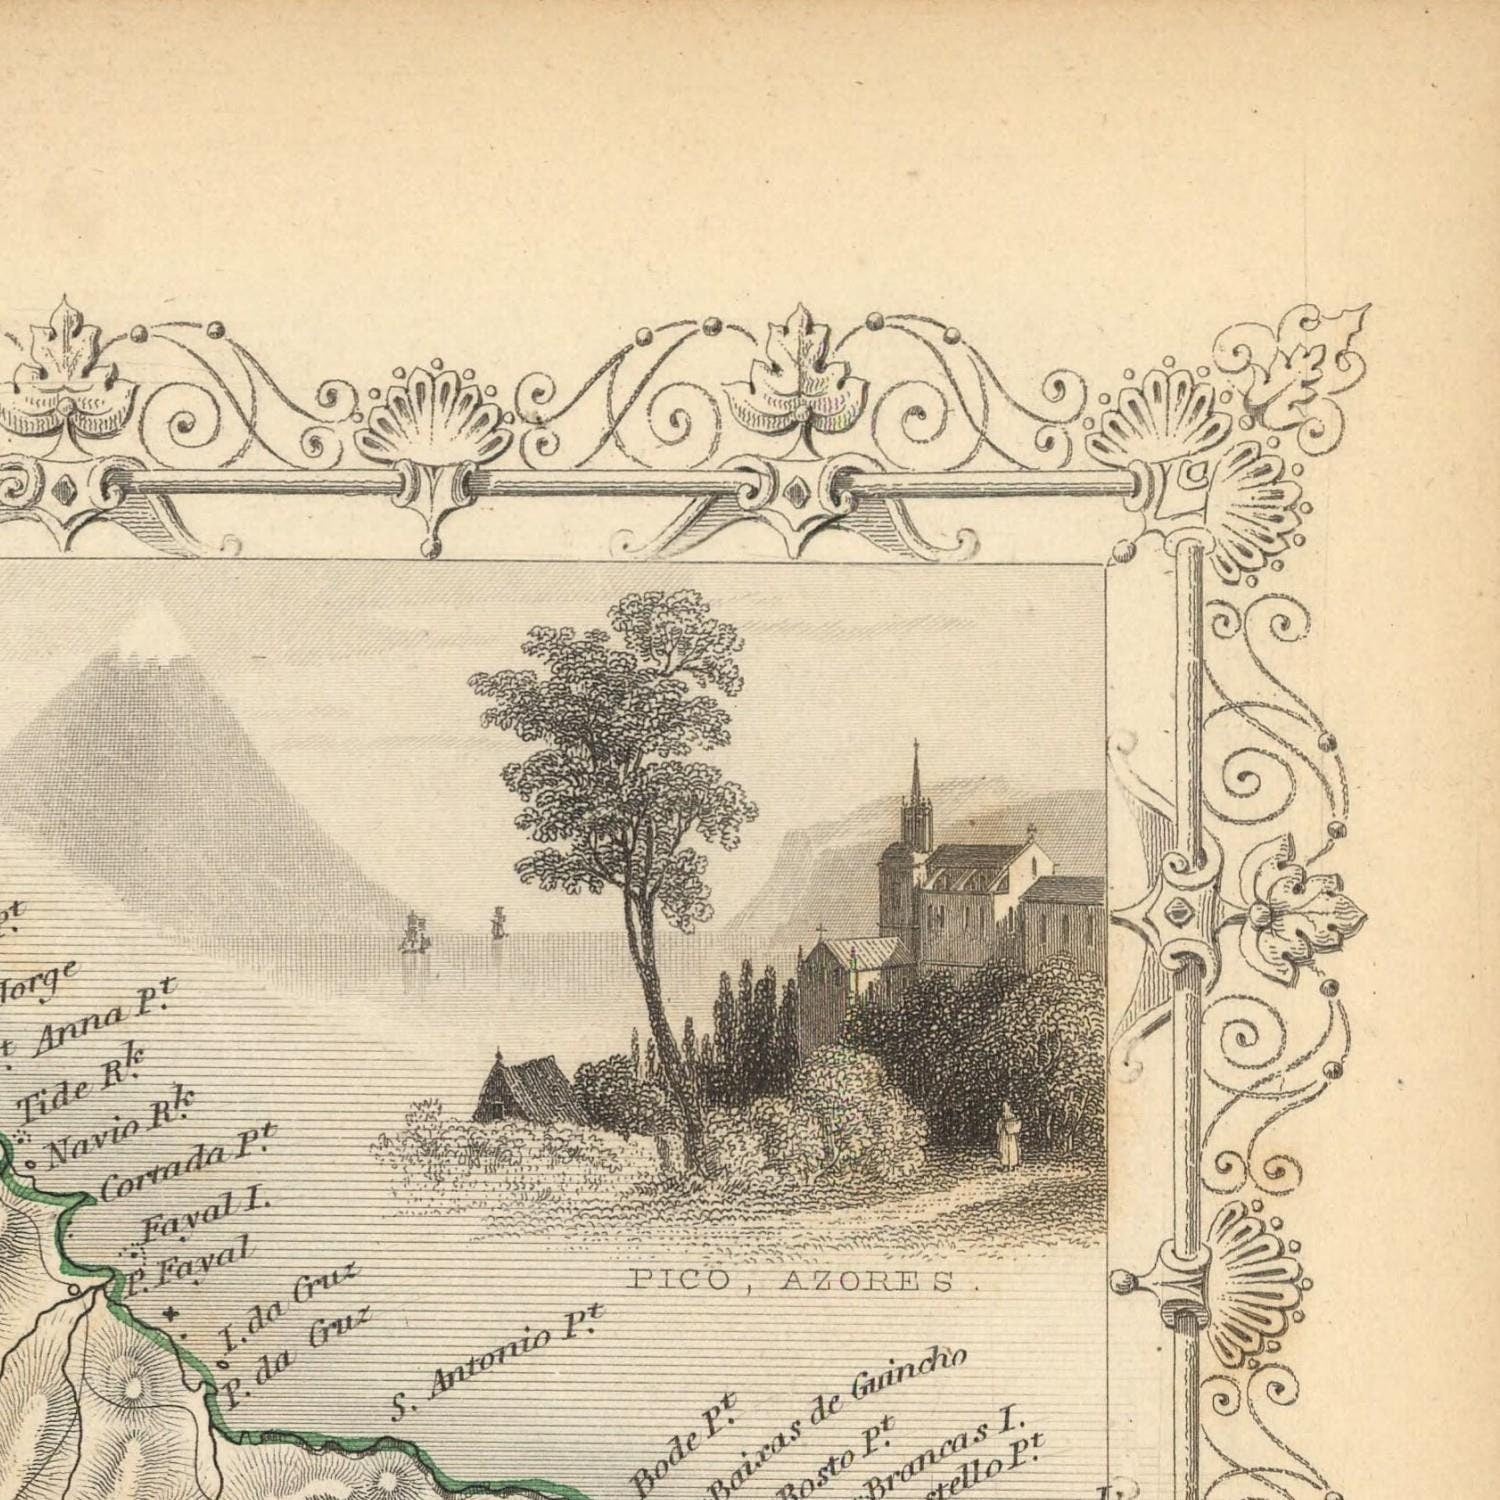 Pt
Jorge
t Anna Pt
Tide Rk
Navio Rk
Cortada Pt
Fayal I.
P. Fayal
I. da Cruz
P. da Cruz
PICO, AZORES.
S. Antonio Pt
Bode Pt
Baixas de Guincho
Bosto Pt
Brancas I.
stello Pt
I.